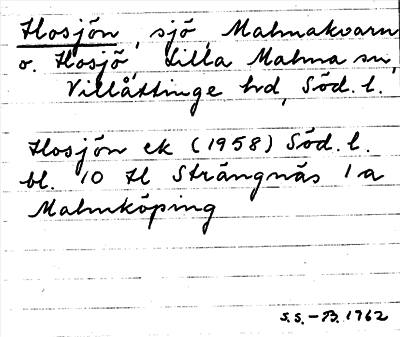 Hosjön, sjö, Malmakvarn
o. Hosjö, Lilla Malma sn,
Villåttinge hd, Söd. l.
Hosjön ek (1958) Söd. l.
bl. 10 H Strängnäs 1 a
Malmköping
S.S.-B. 1962